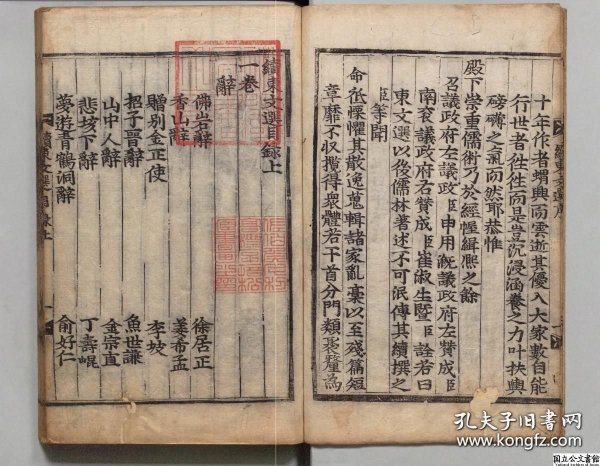 十年作者蝟興而雲遊其優入大家數自能
行世者徃徃而是豈沉浸涵養之力叶扶輿
磅礴之氣而然耶恭惟
殿下崇重儒術乃於經幄緝熙之餘
召議政府左議政臣申用漑議政府左賛成臣
南袞議政府右賛成臣崔淑生曁臣詮若曰
東文選以後儒林著述不可泯傳其續撰之
臣等聞
命祗慄懼其散逸蒐輯諸家亂藁以至殘篇短
章靡不収攬得衆體若干首分門類聚釐為
續東文選序
續東文選目錄上
一卷
辭
佛岩辭 徐居正
香山辭 姜希孟
贈别金正使 李坡
招子晋辭 魚世謙
山中人辭 金宗直
悲垓下辭 丁壽崐
夢遊青鶴洞辭 俞好仁
續東文選目錄上
孔夫子旧书网
www.kongfz.com
国立公文書館